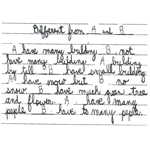 Different from A and B
A have many building B not
have many building. A building
is tall B have small building
A have snow but B no
snow B have much green tree
and flower. A have many
people B have to many people.